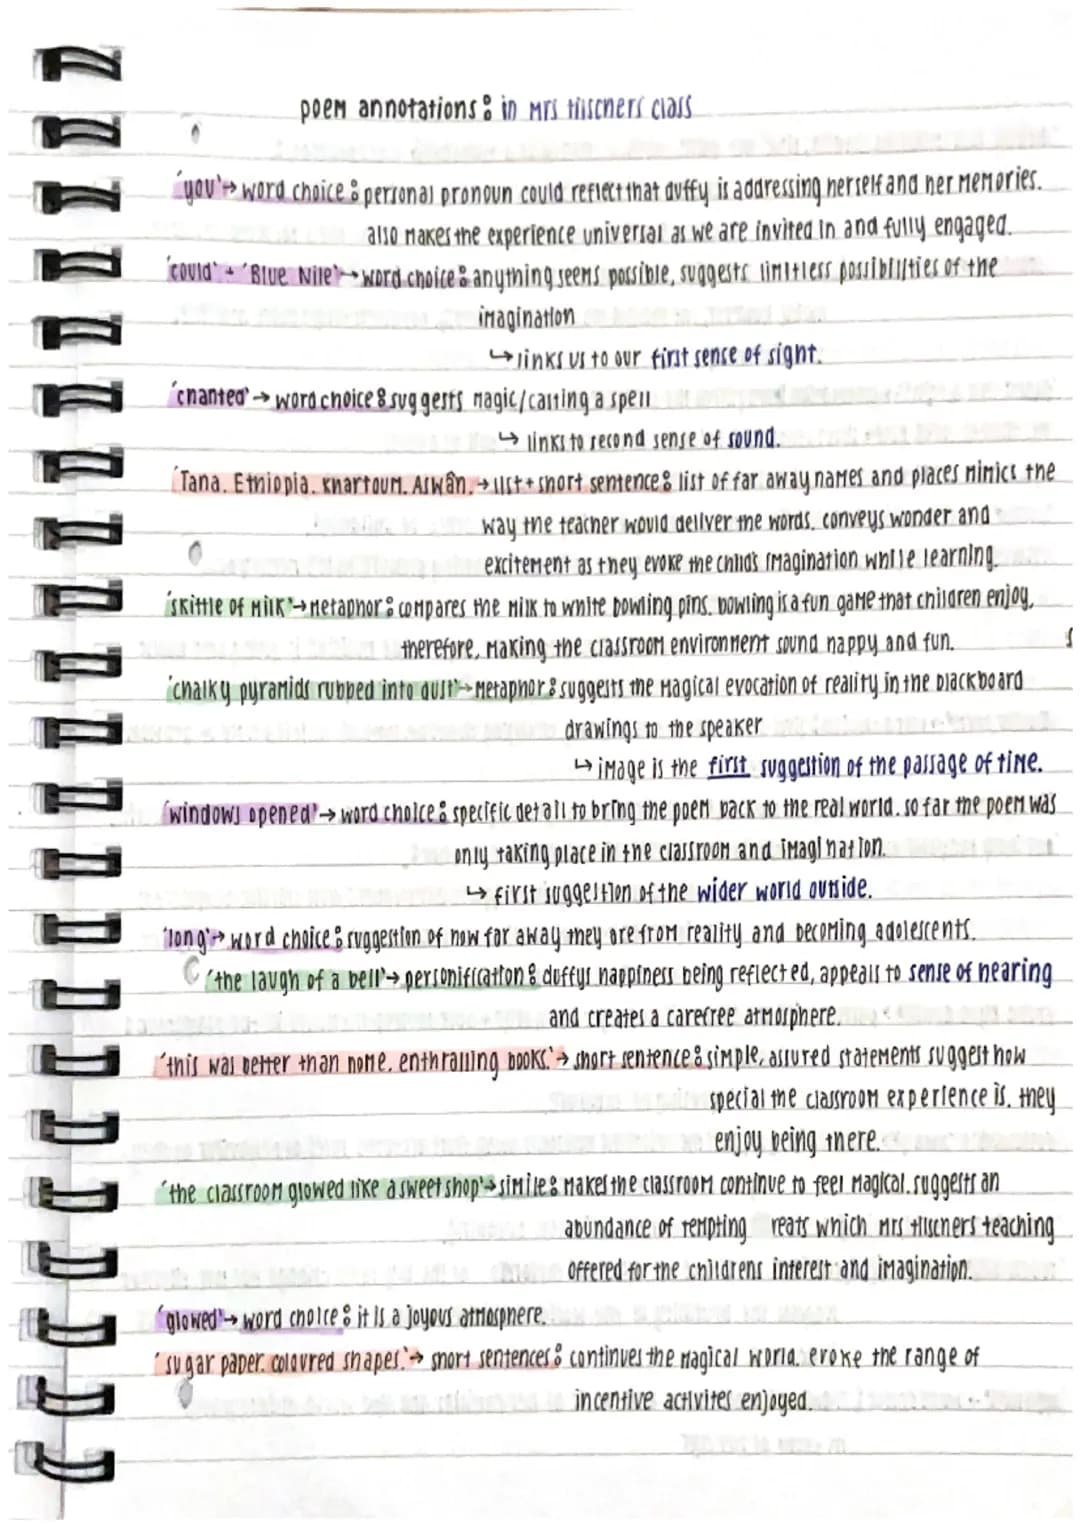 poem annotations: in Mrs tilscners class
'you' → word choice: personal pronoun could reflect that duffy is addressing herself and her memories.
also makes the experience universal as we are invited in and fully engaged.
'could' + 'Blue Nile' → word choice: anything seems possible, suggests limitless possibilities of the
imagination
↳ links us to our first sense of sight.
'chanted' → word choice: suggests magic/casting a spell
↳ links to second sense of sound.
'Tana. Ethiopia. Khartoum. Aswân.' → list + short sentence: list of far away names and places mimics the
way the teacher would deliver the words. conveys wonder and
excitement as they evoke the childs imagination while learning.
'skittle of milk' → metaphor: compares the milk to white bowling pins. bowling is a fun game that children enjoy,
therefore, making the classroom environment sound happy and fun.
'chalky pyramids rubbed into dust' → metaphor: suggests the magical evocation of reality in the blackboard
drawings to the speaker
↳ image is the first suggestion of the passage of time.
'windows opened' → word choice: specific detail to bring the poem back to the real world. so far the poem was
only taking place in the classroom and imagination.
↳ first suggestion of the wider world outside.
'long' → word choice: suggestion of how far away they are from reality and becoming adolescents.
'the laugh of a bell' → personification: duffys happiness being reflected, appeals to sense of hearing
and creates a carefree atmosphere.
'this was better than home. enthralling books.' → short sentence: simple, assured statements suggest how
special the classroom experience is. they
enjoy being there.
'the classroom glowed like a sweet shop' → simile: makes the classroom continue to feel magical. suggests an
abundance of tempting reats which mrs tilscners teaching
offered for the childrens interest and imagination.
'glowed' → word choice: it is a joyous atmosphere.
'sugar paper. coloured shapes.' → short sentences: continues the magical world. evoke the range of
incentive activites enjoyed.